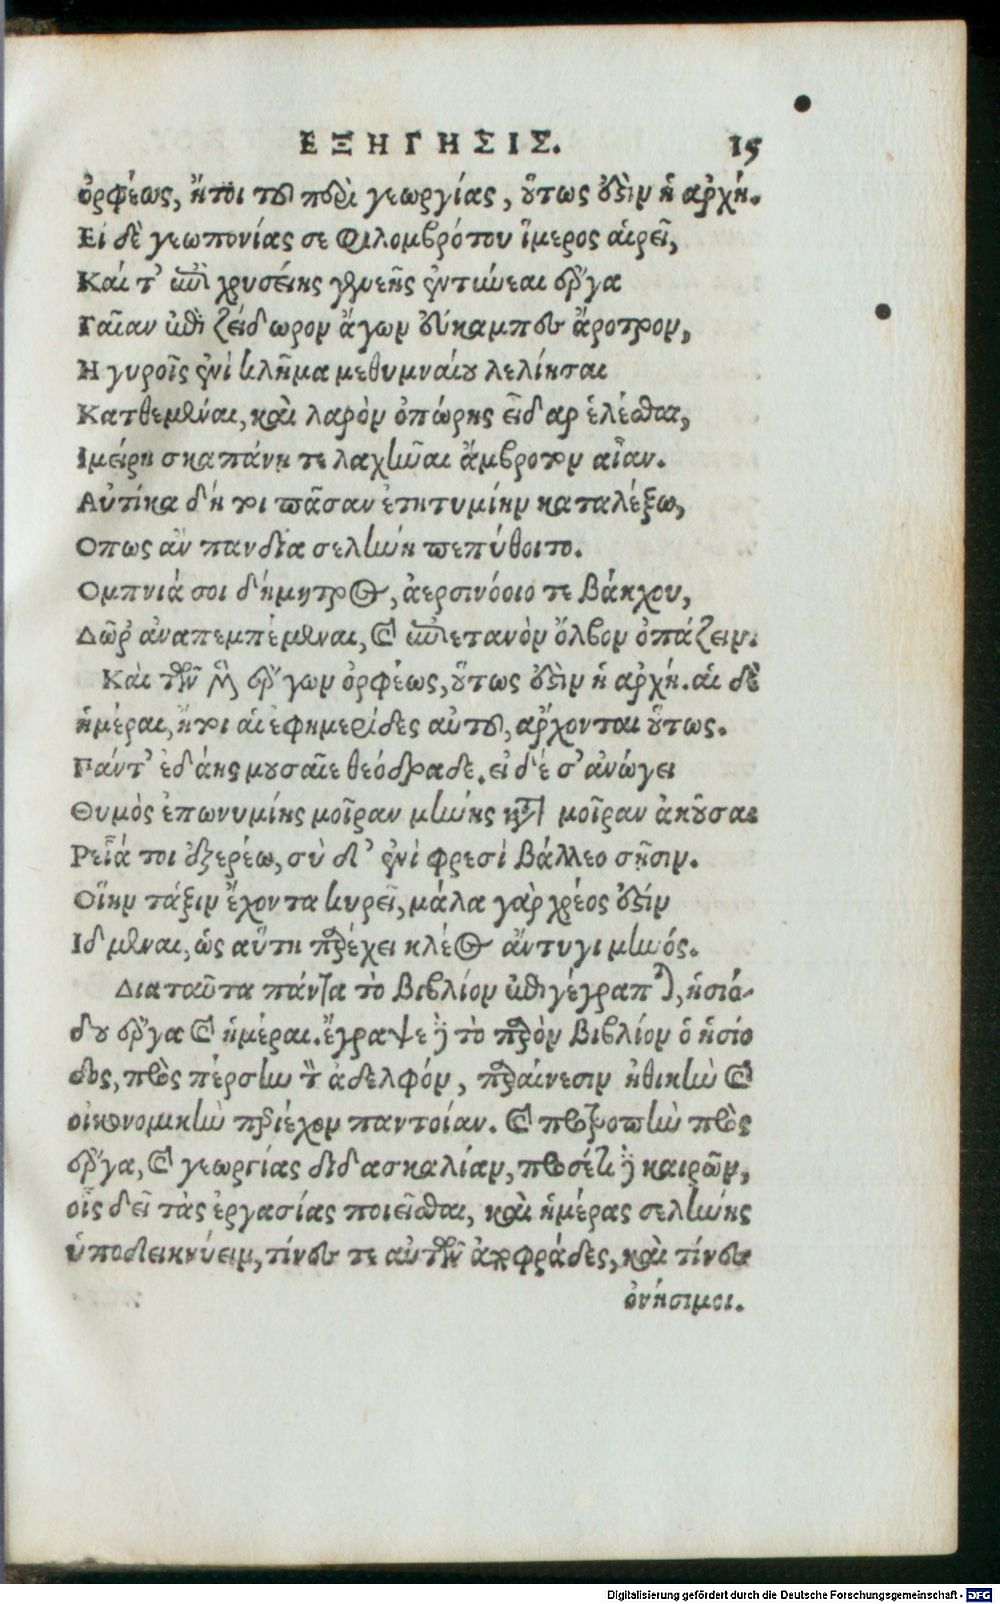 ΕΞΗΓΗΣΙΣ. 15
ὀρφέως, ἤτοι τοῦ περὶ γεωργίας, οὕτως ὅξιν ἡ ἀρχή.
Εἰ δὲ γεωπονίας σε φιλομβρότου ἵμερος αἱρεῖ,
Καί τ᾽ ἐπὶ χρυσείης γενεῆς ἐντύνεαι ἔργα
Γαῖαν ἐπὶ ζείδωρον ἄγων εὔκαμπες ἄροτρον,
Η γυροῖς ἐνὶ κλῆμα μεθυμναίου λελίησαι
Κατθεμέναι, καὶ λαρὸν ὀπώρης εἶδαρ ἑλέσθαι,
Ιμείρῃ σκαπάνῃ τε λαχῆναι ἄμβροτον αἶαν.
Αὐτίκα δή τοι πᾶσαν ἐτητυμίην καταλέξω,
Οπως ἂν πανδῖα σελήνη πεπύθοιτο.
Ομπνιά σοι δήμητρος, ἀερσινόοιο τε βάκχου,
Δῶρ᾽ ἀναπεμπέμεναι, καὶ ἐπηετανὸν ὄλβον ὀπάζειν.
Καὶ τῶν μὲν ἔργων ὀρφέως, οὕτως ὅξιν ἡ ἀρχή. αἱ δὲ
ἡμέραι, ἤτοι αἱ ἐφημερίδες αὐτοῦ, ἄρχονται οὕτως.
Πάντ᾽ ἐδάης μουσαῖε θεόφραδε. εἰ δέ σ᾽ ἀνώγει
Θυμὸς ἐπωνυμίης μοῖραν μήνης κατὰ μοῖραν ἀκοῦσαι
Ρεῖά τοι ἐξερέω, σὺ δ᾽ ἐνὶ φρεσὶ βάλλεο σῇσιν.
Οἵην τάξιν ἔχοντα κυρεῖ, μάλα γὰρ χρέος ἐστίν
Ιδμεναι, ὡς αὕτη παρέχει κλέος ἄντυγι μηνός.
Διὰ ταῦτα πάντα τὸ βιβλίον ἐπιγέγραπται, ἡσιό-
δου ἔργα καὶ ἡμέραι. ἔγραψε δὲ τὸ παρὸν βιβλίον ὁ ἡσίο
δος, πρὸς πέρσην τὸν ἀδελφόν, παραίνεσιν ἠθικὴν καὶ
οἰκονομικὴν περιέχον παντοίαν. καὶ προτροπὴν πρὸς
ἔργα, καὶ γεωργίας διδασκαλίαν, προσέτι δὲ καιρῶν,
οἷς δεῖ τὰς ἐργασίας ποιεῖσθαι, καὶ ἡμέρας σελήνης
ὑποδεικνύειν, τίνες τε αὐτῶν ἀποφράδες, καὶ τίνες
ὀνήσιμοι.
Digitalisierung gefördert durch die Deutsche Forschungsgemeinschaft - DFG